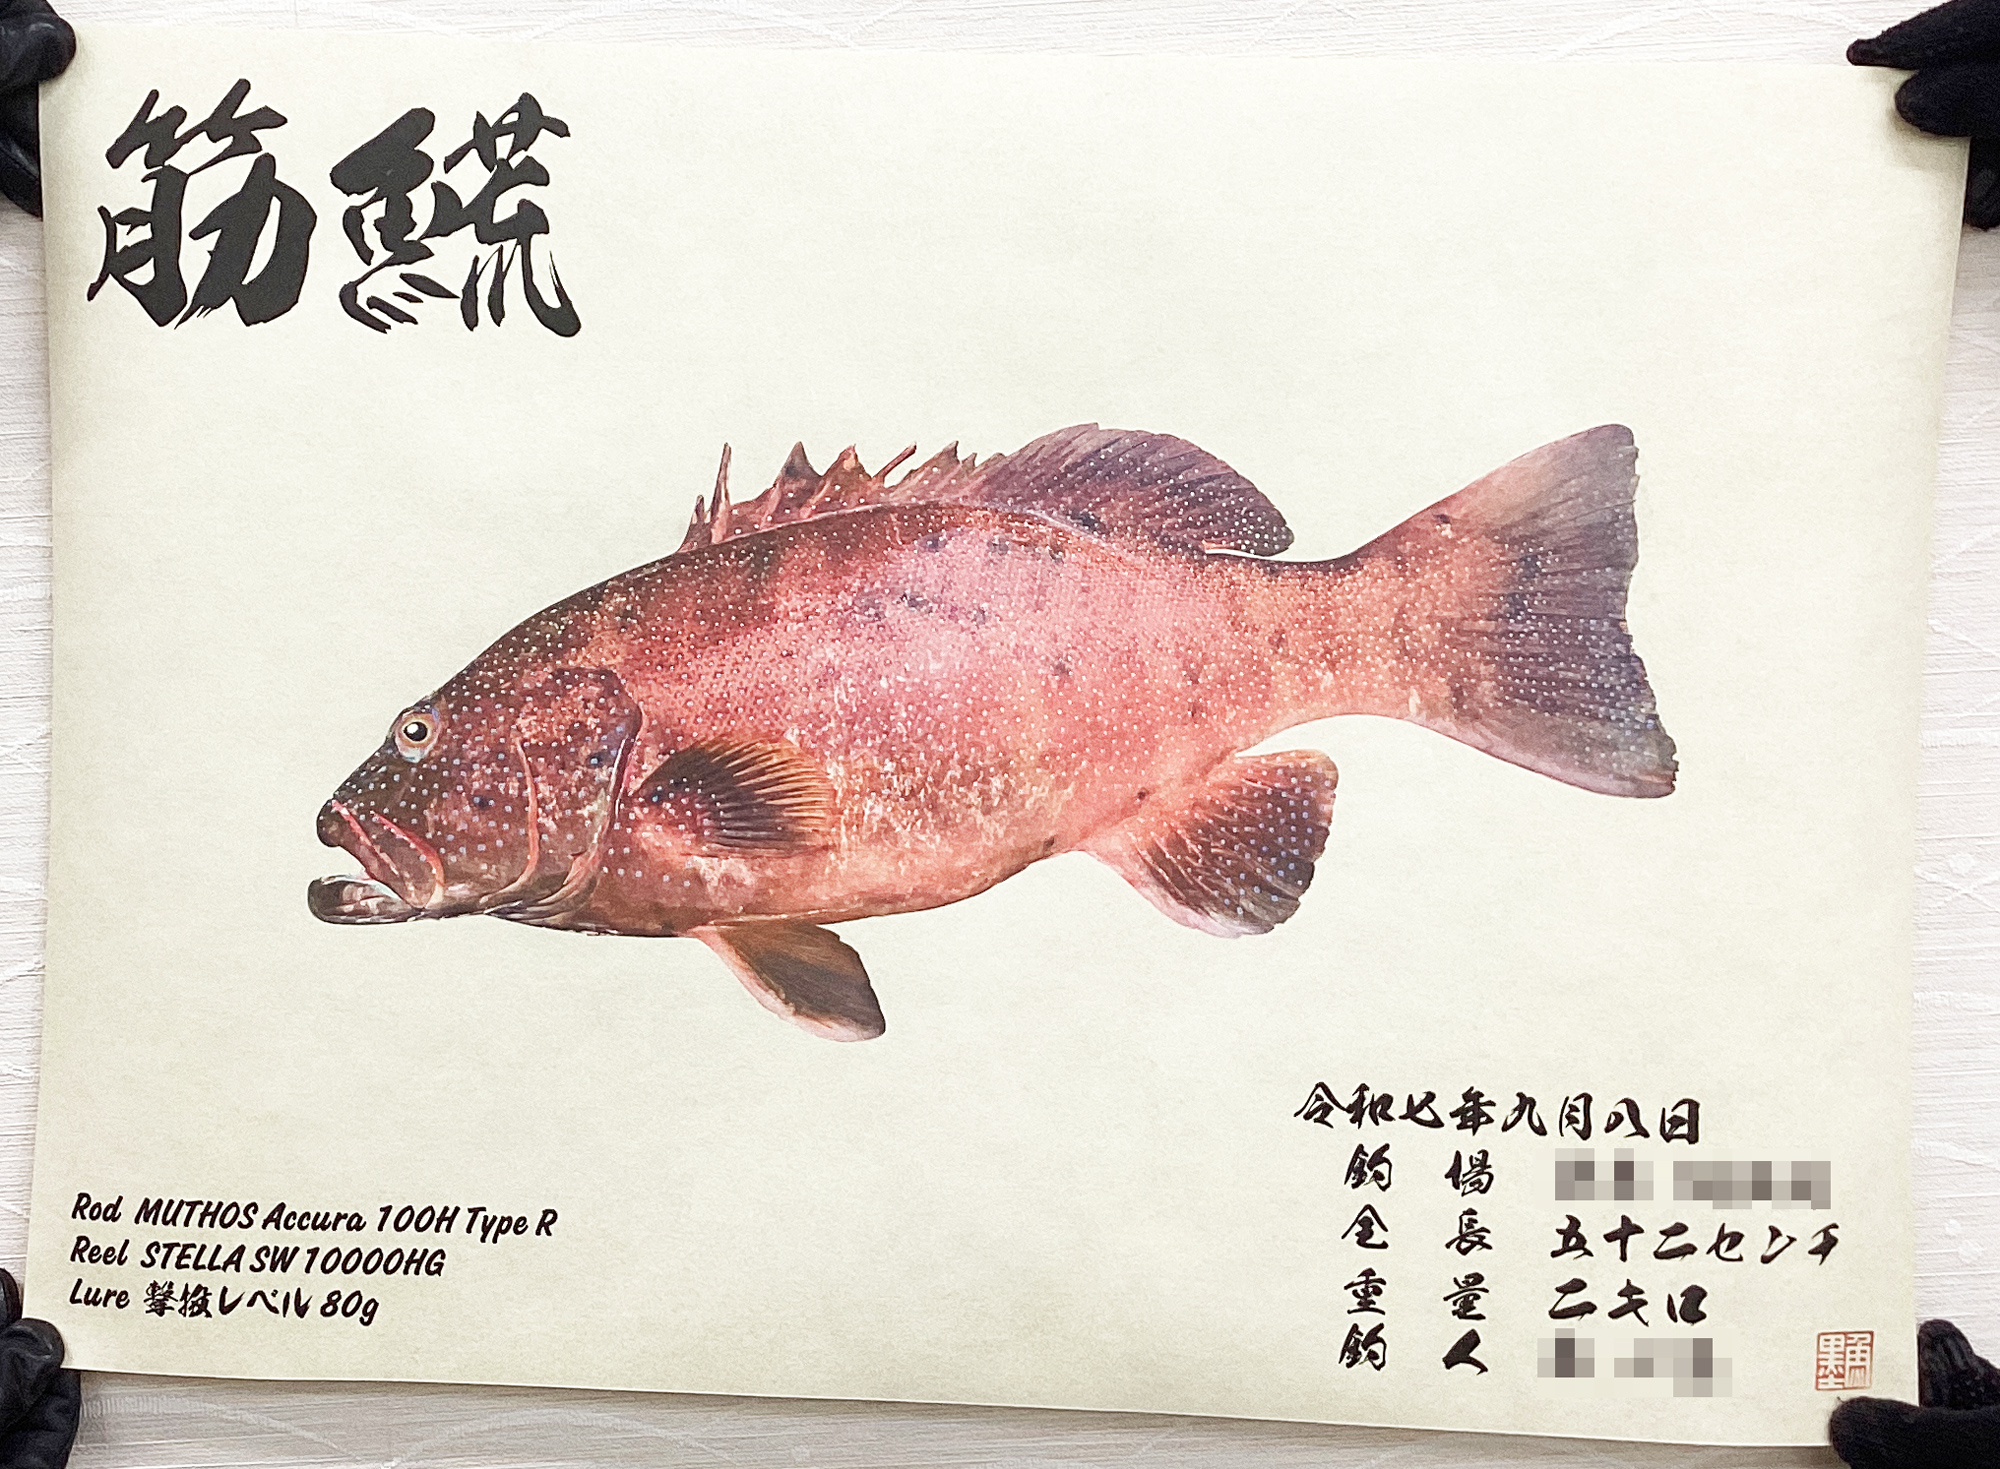 筋𩺊
令和七年九月八日
釣場
全長 五十二センチ
重量 二キロ
釣人
Rod MUTHOS Accura 100H Type R
Reel STELLA SW 10000HG
Lure 撃投レベル 80g